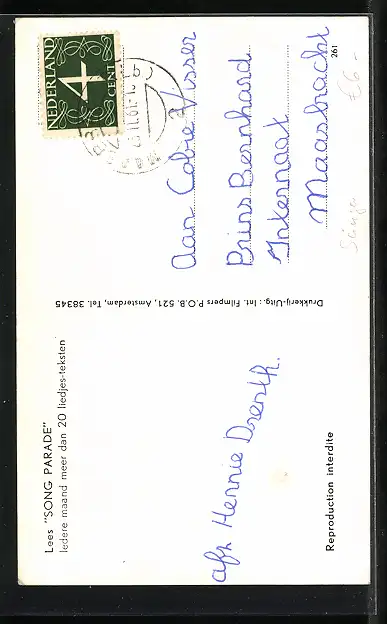 Lees "SONG PARADE"
Iedere maand meer dan 20 liedjes-teksten
afz. Hennie Drenth.
Reproduction interdite
Drukkerij-Uitg.: Int. Filmpers P.O.B. 521, Amsterdam, Tel. 38345
NEDERLAND
4
CENT
Aan Cobie Visser
Prins Bernhard
Internaat
Maasbracht
261
€6-